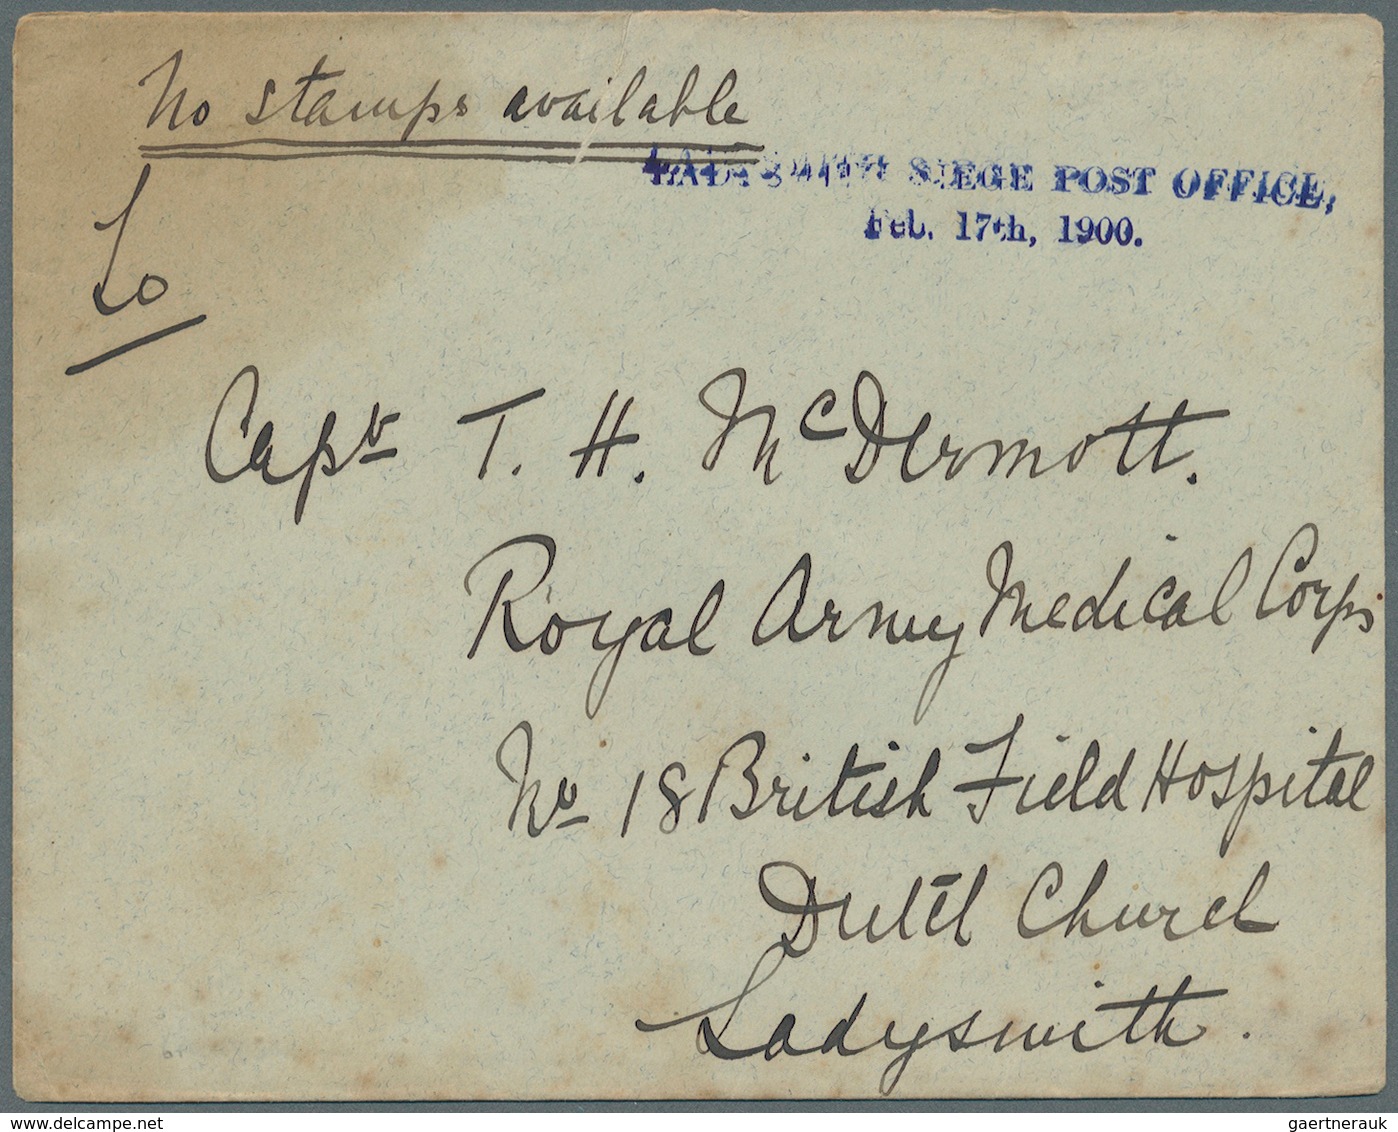 No stamps available
LADYSMITH SIEGE POST OFFICE,
Feb. 17th, 1900.
To
Capt T. H. McDermott.
Royal Army Medical Corps
No 18 British Field Hospital
Dutch Church
Ladysmith.
delcampe.net
gaertnerauk